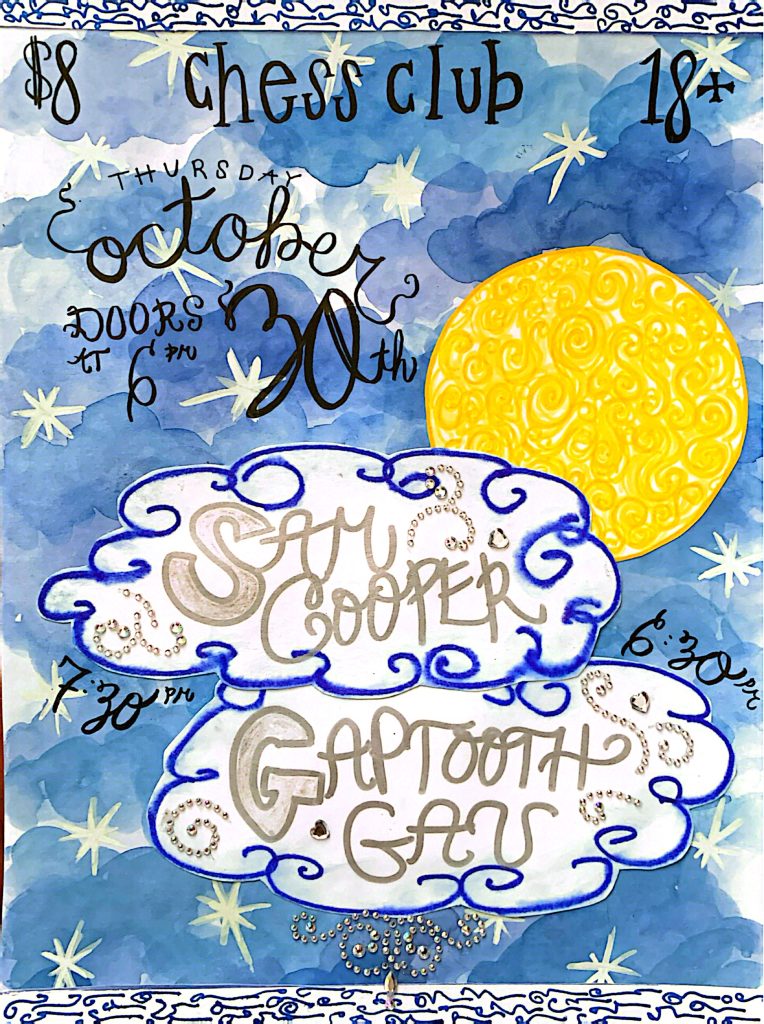 $8 chess club 18+
THURSDAY
october
30th
DOORS
AT 6 PM
SAM
COOPER
7:30 PM
6:30 PM
GAPTOOTH
GAV